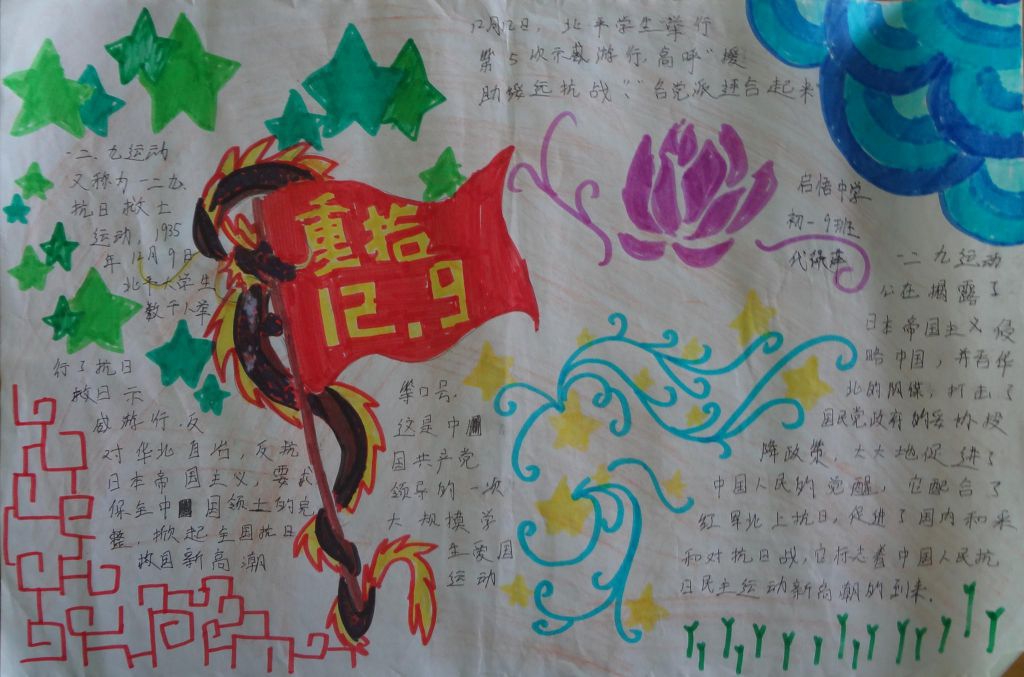 12月12日，北平学生举行
第5次示威游行，高呼“援
助绥远抗战”、“各党派联合起来”
一二·九运动
又称为一二九
抗日救亡
运动，1935
年12月9日
北平大学生
数千人举
行了抗日
救日示
威游行，反
对华北自治，反抗
日本帝国主义，要求
保全中国领土的完
整，掀起全国抗日
救国新高潮
重拾
12.9
等口号.
这是中
国共产党
领导的一次
大规模学
生爱国
运动
启悟中学
初一9班
一二九运动
公在揭露了
日本帝国主义侵
略中国，并吞华
北的阴谋，打击了
国民党政府的妥协投
降政策，大大地促进了
中国人民的觉醒，它配合了
红军北上抗日，促进了国内和平
和对抗日战，它标志着中国人民抗
日民主运动新高潮的到来.